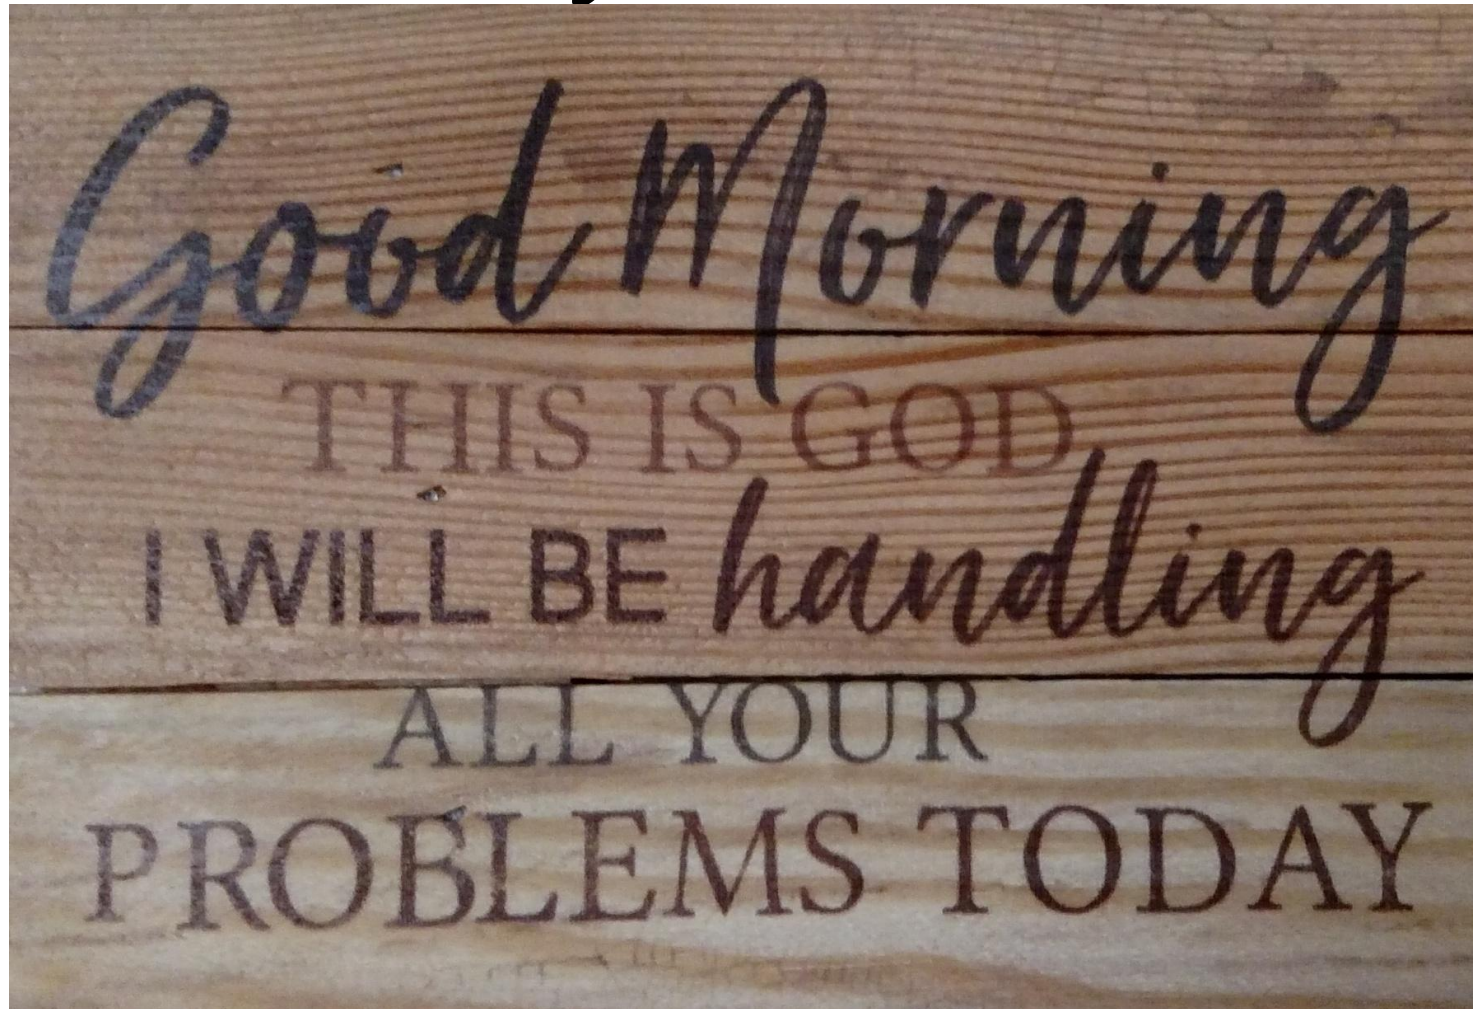 Good Morning
THIS IS GOD
I WILL BE handling
ALL YOUR
PROBLEMS TODAY